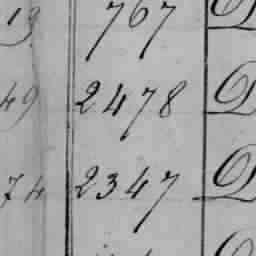 19 767 D
49 2478 D
74 2347 D